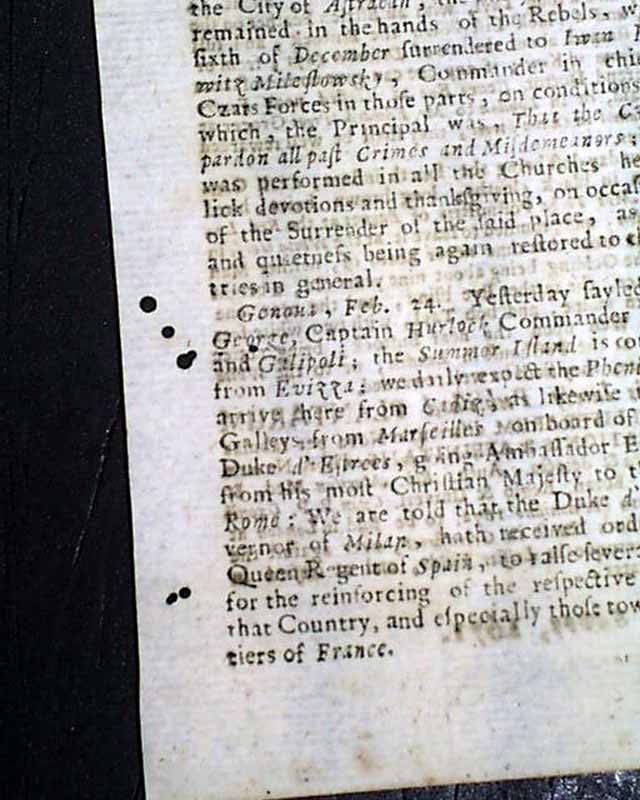 the City of Aſtracan, the
remained in the hands of the Rebels, w
ſixth of December ſurrendered to Iwan
witz Miloſlowsky, Commander in chie
Czars Forces in thoſe parts, on conditions
which, the Principal was, That the C
pardon all paſt Crimes and Miſdemeanors;
was performed in all the Churches he
lick devotions and thankſgiving, on occaſ
of the Surrender of the ſaid place, as
and quietneſs being again reſtored to t
tries in general.
Genoua, Feb. 24. Yeſterday ſayled
George, Captain Hurlock Commander
and Galipoli; the Summer Iſland is co
from Evizza; we daily expect the Pheni
arrive here from Cadiz, as likewiſe
Galleys from Marſeilles on board of
Duke d'Eſtrees, going Ambaſſador E
from his moſt Chriſtian Majeſty to t
Rome: We are told that the Duke d
vernor of Milan, hath received ord
Queen Regent of Spain, to raiſe ſever
for the reinforcing of the reſpective
that Country, and eſpecially thoſe tow
tiers of France.